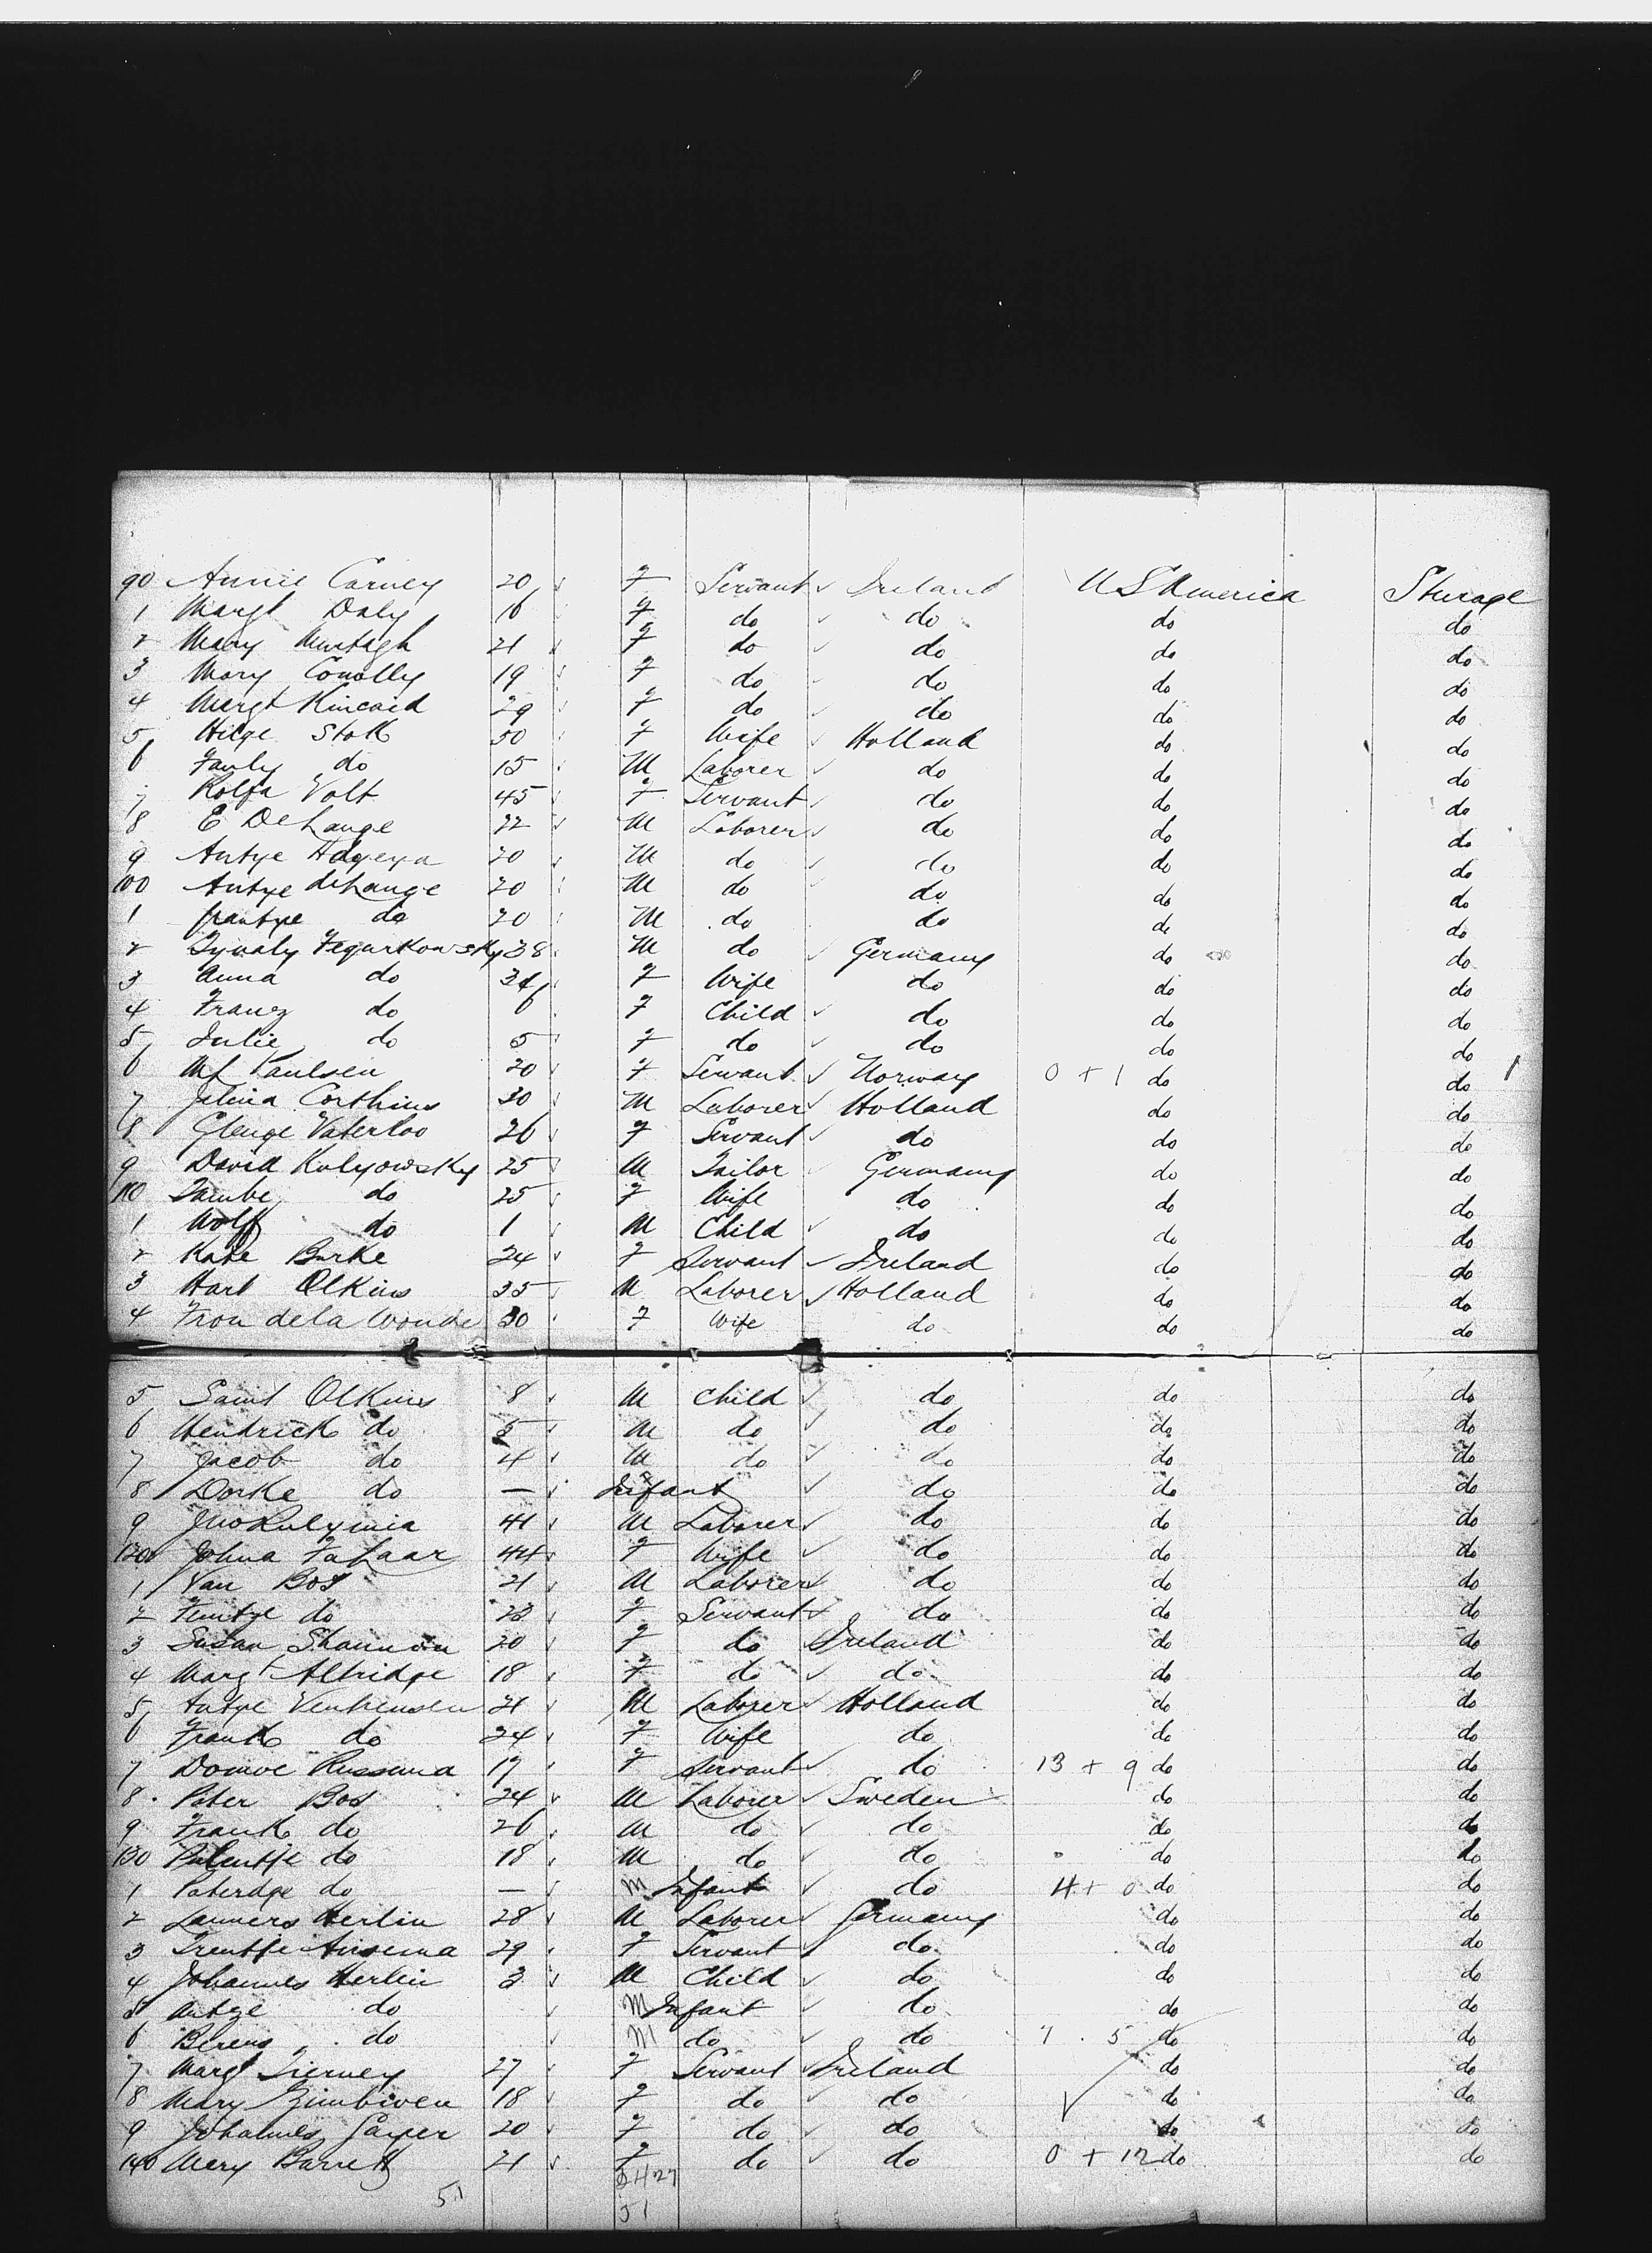 90 Annie Carney 20 F Servant Ireland USAmerica Sturage
1 Margt Daly 16 F do do do do
2 Mary Murtagh 21 F do do do do
3 Mary Conolly 19 F do do do do
4 Margt Kincaid 29 F do do do do
5 Hilge Stok 50 F Wife Holland do do
6 Fauly do 15 M Laborer do do do
7 Rolfa Volt 45 F Servant do do do
8 E DeLange 22 M Laborer do do do
9 Antye 20 M do do do do
100 Antye deLange 20 M do do do do
1 do 20 M do do do do
2 Fegurkowsky 38 M do Germany do do
3 Anna do 34 F Wife do do do
4 Franz do 6 F Child do do do
5 Julie do 5 F do do do do
6 Paulsen 20 F Servant Norway 0 + 1 do do
7 Corthius 30 M Laborer Holland do do
8 Glenge Vaterloo 26 F Servant do do do
9 David Kulyowsky 25 M Tailor Germany do do
110 do 25 F Wife do do do
1 Wolff do 1 M Child do do do
2 Kate Burke 24 F Servant Ireland do do
3 Hart Olkins 35 M Laborer Holland do do
4 Frou dela Wonde 30 F Wife do do do
5 Saint Olkins 8 M Child do do do
6 Hendrick do 5 M do do do do
7 Jacob do 4 M do do do do
8 Dorke do — Infant do do do
9 41 M Laborer do do do
120 Johna 44 F Wife do do do
1 Van Bos 21 M Laborer do do do
2 Femtge do 23 F Servant do do do
3 Susan Shannon 20 F do Ireland do do
4 Margt Albridge 18 F do do do do
5 Antye Venhensen 21 M Laborer Holland do do
6 Frank do 24 F Wife do do do
7 Douwe Russuma 17 F Servant do 13 + 9 do do
8 Pater Bos 24 M Laborer Sweden do do
9 Frank do 26 M do do do do
130 do 18 M do do do do
1 Paterdge do — M Infant do 4 + 0 do do
2 Lammers Herlin 28 M Laborer Germany do do
3 Trentje 29 F Servant do do do
4 Johannes Herlin 3 M Child do do do
5 Antge do M Infant do do do
6 Berens do M do do 7 . 5 do do
7 Margt Tierney 27 F Servant Ireland do do
8 Mary 18 F do do do do
9 Johannes 20 F do do do do
140 Mery Barrett 21 F do do 0 + 12 do do
51 27
51